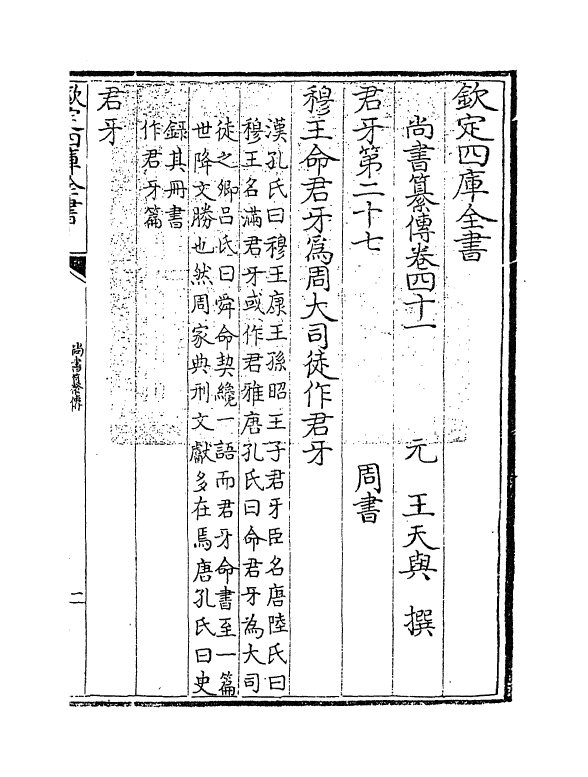 欽定四庫全書
尚書纂傳卷四十一 元 王天與 撰
君牙第二十七 周書
穆王命君牙為周大司徒作君牙
漢孔氏曰穆王康王孫昭王子君牙臣名唐陸氏曰
穆王名滿君牙或作君雅唐孔氏曰命君牙為大司
徒之卿吕氏曰舜命契纔一語而君牙命書至一篇
世降文勝也然周家典刑文獻多在焉唐孔氏曰史
録其冊書
作君牙篇
君牙
欽定四庫全書
尚書纂傳
二